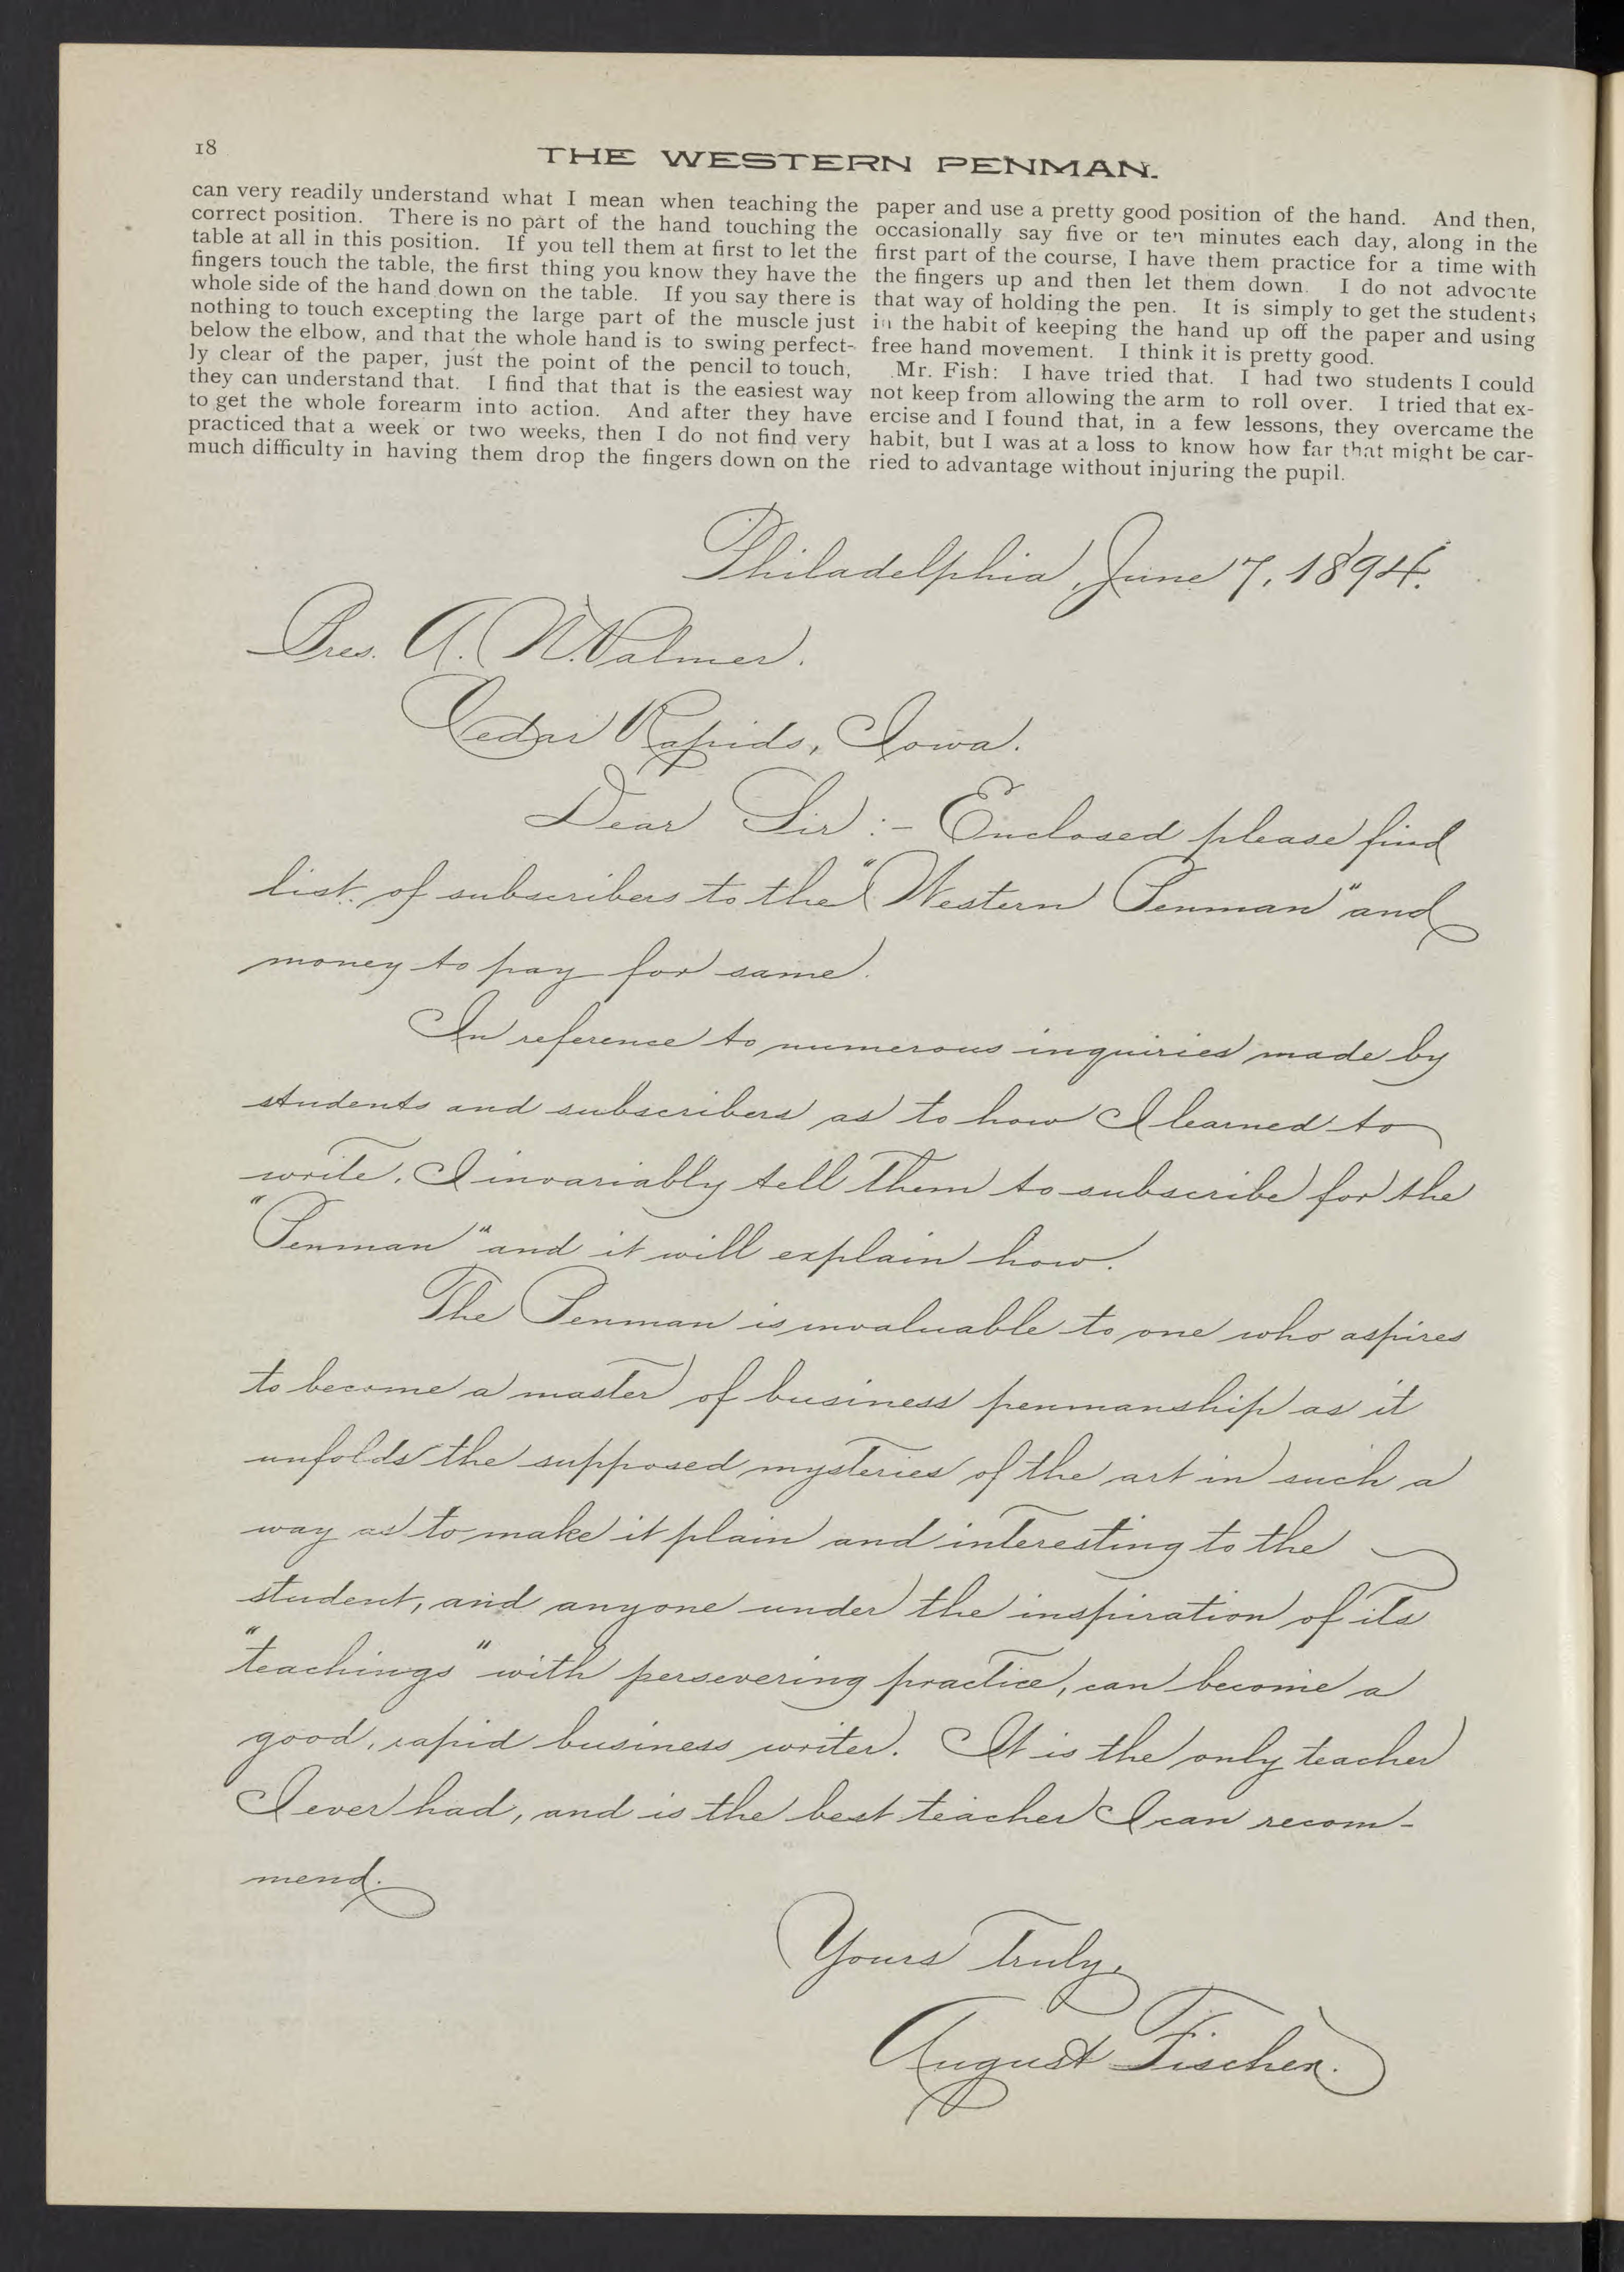 18
THE WESTERN PENMAN.
can very readily understand what I mean when teaching the
correct position. There is no part of the hand touching the
table at all in this position. If you tell them at first to let the
fingers touch the table, the first thing you know they have the
whole side of the hand down on the table. If you say there is
nothing to touch excepting the large part of the muscle just
below the elbow, and that the whole hand is to swing perfect-
ly clear of the paper, just the point of the pencil to touch,
they can understand that. I find that that is the easiest way
to get the whole forearm into action. And after they have
practiced that a week or two weeks, then I do not find very
much difficulty in having them drop the fingers down on the
paper and use a pretty good position of the hand. And then,
occasionally say five or ten minutes each day, along in the
first part of the course, I have them practice for a time with
the fingers up and then let them down. I do not advocate
that way of holding the pen. It is simply to get the students
in the habit of keeping the hand up off the paper and using
free hand movement. I think it is pretty good.
Mr. Fish: I have tried that. I had two students I could
not keep from allowing the arm to roll over. I tried that ex-
ercise and I found that, in a few lessons, they overcame the
habit, but I was at a loss to know how far that might be car-
ried to advantage without injuring the pupil.
Philadelphia, June 7, 1894.
Pres. A. N. Palmer.
Cedar Rapids, Iowa.
Dear Sir:- Enclosed please find
list of subscribers to the "Western Penman" and
money to pay for same.
In reference to numerous inquiries made by
students and subscribers as to how I learned to
write, I invariably tell them to subscribe for the
"Penman" and it will explain how.
The Penman is invaluable to one who aspires
to become a master of business penmanship as it
unfolds the supposed mysteries of the art in such a
way as to make it plain and interesting to the
student, and anyone under the inspiration of its
"teachings" with persevering practice, can become a
good, rapid business writer. It is the only teacher
I ever had, and is the best teacher I can recom-
mend.
Yours Truly,
August Fischer.